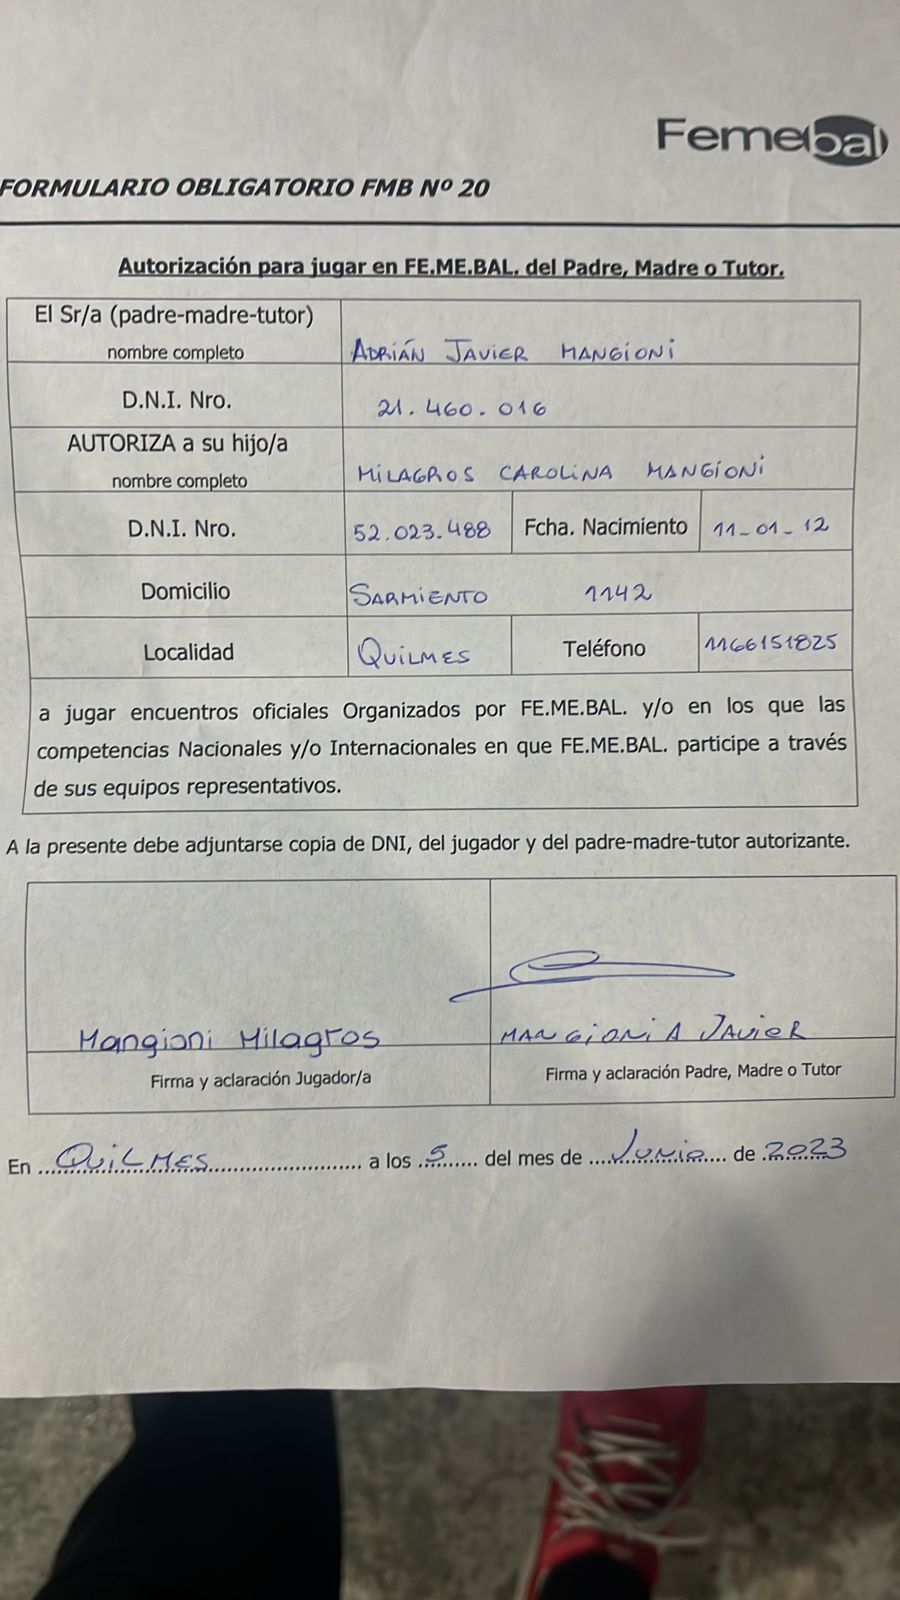 Femebal
FORMULARIO OBLIGATORIO FMB Nº 20
Autorización para jugar en FE.ME.BAL. del Padre, Madre o Tutor.
El Sr/a (padre-madre-tutor)
nombre completo
ADRIÁN JAVIER MANGIONI
D.N.I. Nro.
21.460.016
AUTORIZA a su hijo/a
nombre completo
MILAGROS CAROLINA MANGIONI
D.N.I. Nro.
52.023.488
Fcha. Nacimiento
11-01-12
Domicilio
SARMIENTO 1142
Localidad
QUILMES
Teléfono
1166151825
a jugar encuentros oficiales Organizados por FE.ME.BAL. y/o en los que las
competencias Nacionales y/o Internacionales en que FE.ME.BAL. participe a través
de sus equipos representativos.
A la presente debe adjuntarse copia de DNI, del jugador y del padre-madre-tutor autorizante.
Mangioni Milagros
MANGIONI A JAVIER
Firma y aclaración Jugador/a
Firma y aclaración Padre, Madre o Tutor
En QUILMES a los 5 del mes de JUNIO de 2023